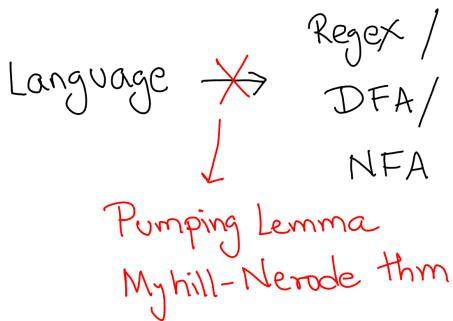 Language
Regex /
DFA/
NFA
Pumping Lemma
Myhill-Nerode thm